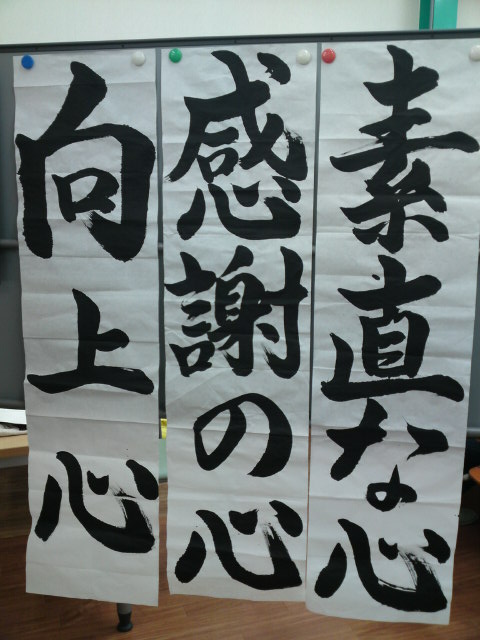 素直な心
感謝の心
向上心